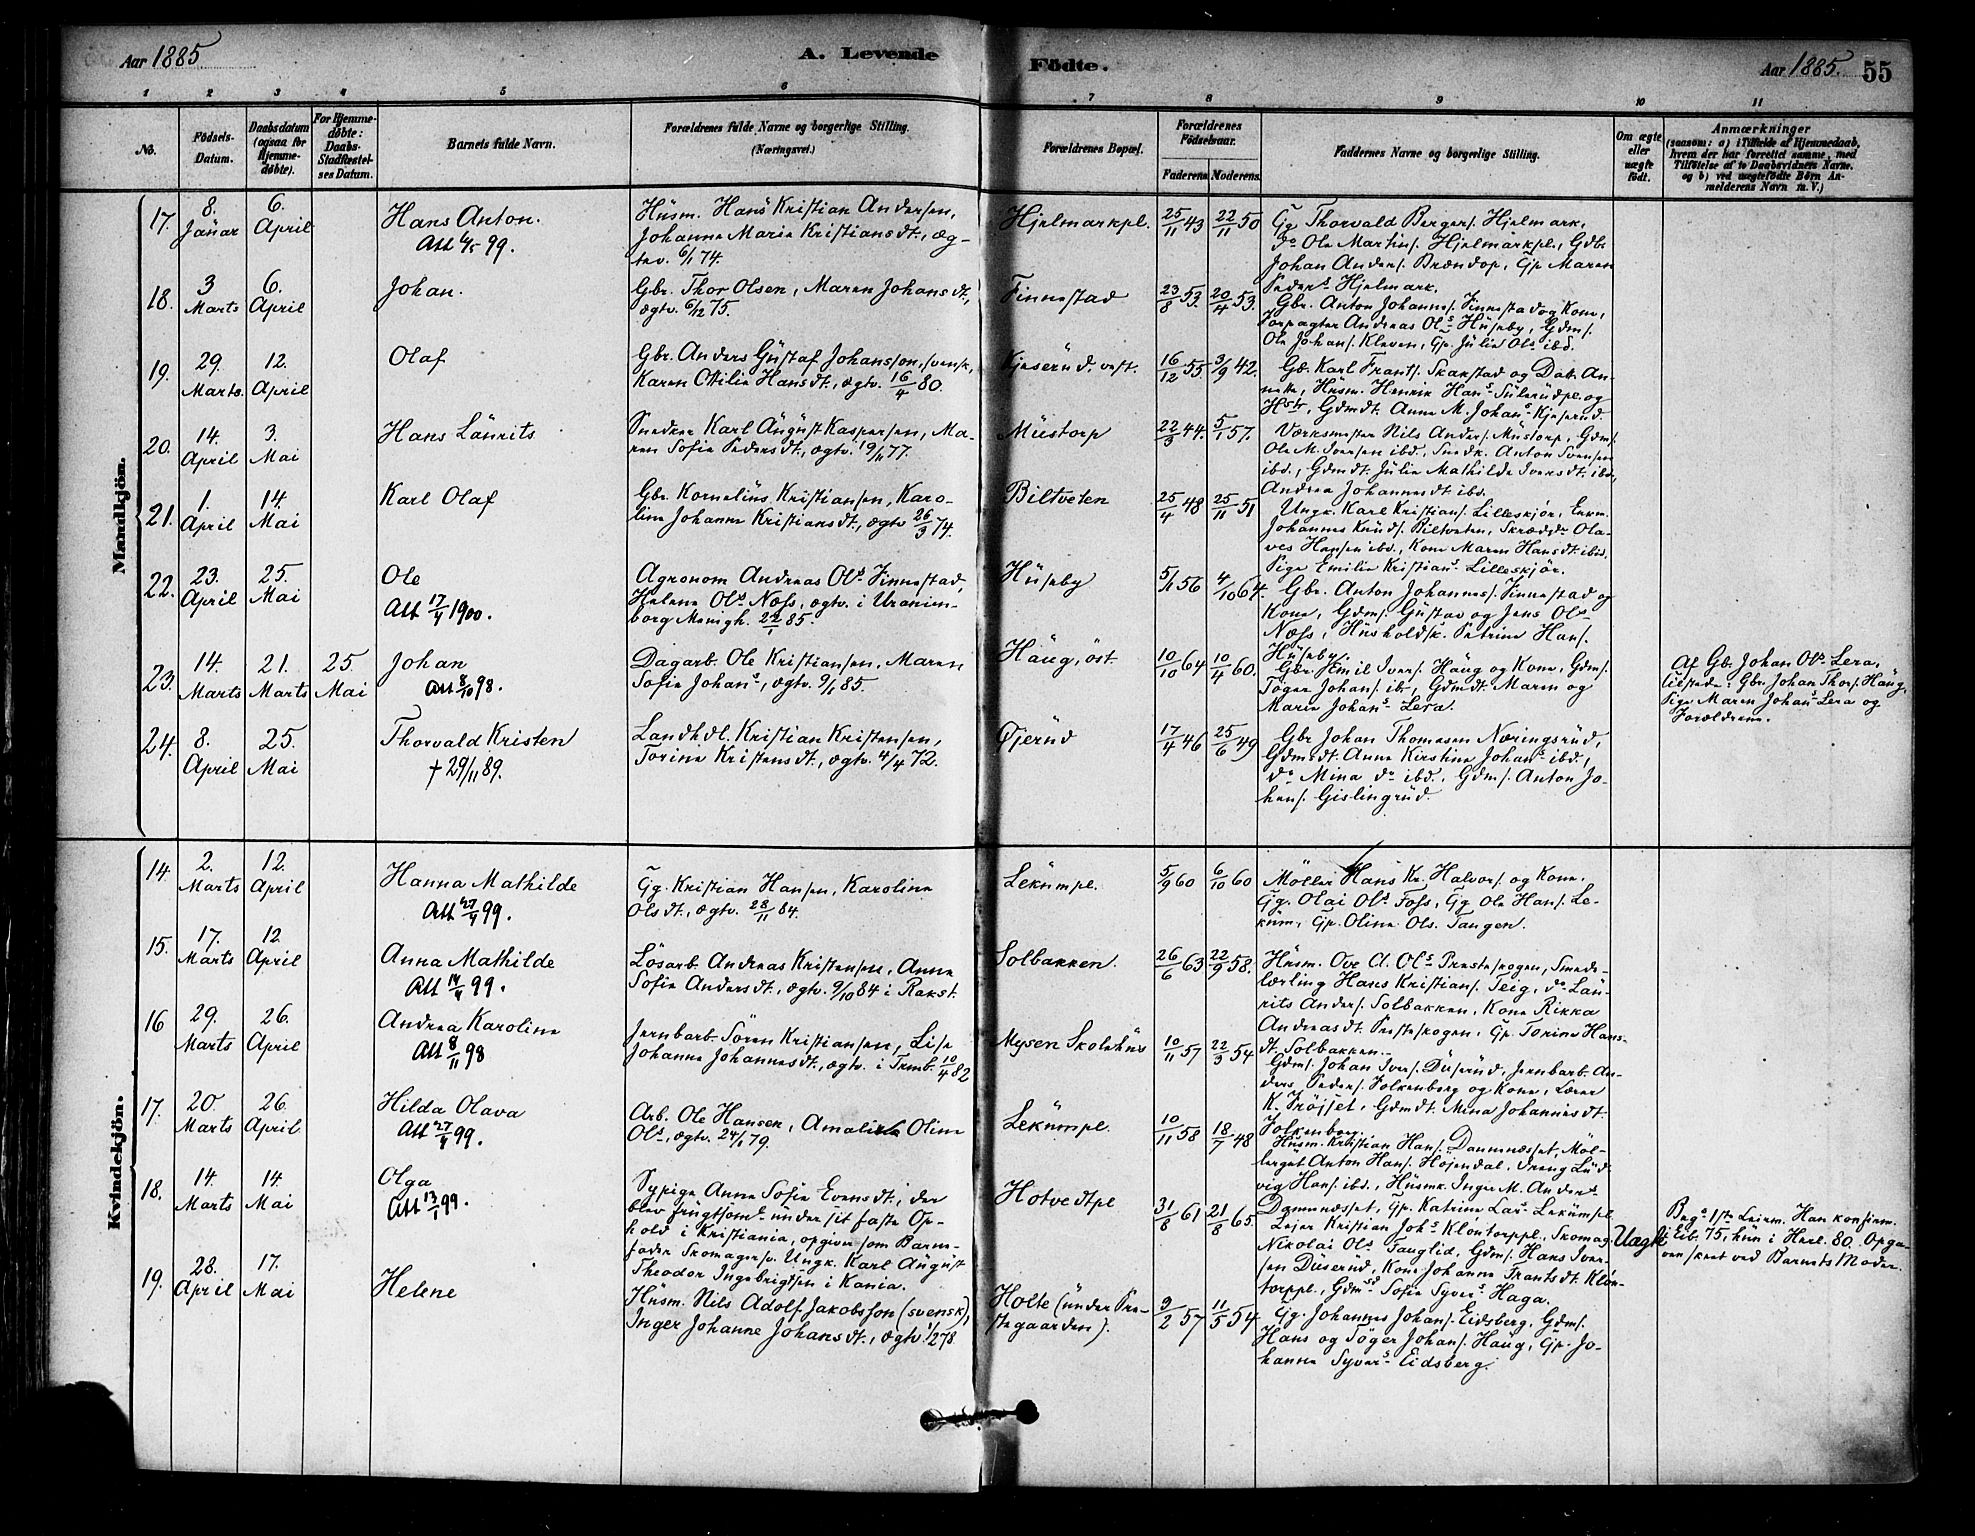 Aar 1885
A. Levende
Födte.
Aar 1885. 55
1 2 3 4 5 6 7 8 9 10 11
No.
Födsels-
Datum.
Daabsdatum
(ogsaa for
Hjemme-
døbte).
For Hjemme-
døbte:
Daabs-
Stadfæstel-
ses Datum.
Barnets fulde Navn.
Forældrenes fulde Navne og borgerlige Stilling.
(Næringsvei.)
Forældrenes Bopæl.
Forældrenes
Födselsaar.
Faderens Moderens
Faddernes Navne og borgerlige Stilling.
Om ægte
eller
uægte
født.
Anmærkninger
(saasom: a) i Tilfælde af Hjemmedaab,
hvem der har forrettet samme, med
Tilføielse af to Daabsvidners Navne.
og b) ved uægtefødte Börn An-
melderens Navn m. V.)
Mandkjön.
17. 8. Januar 6. April
Hans Anton.
Att 14/5 99.
Husm. Hans Kristian Andersen,
Johanne Marie Kristiansdt., æg-
tev. 6/1 74.
Hjelmarkpl. 25/11 43 22/11 50
Gg Thorvald Bergers. Hjelmark,
do Ole Martins. Hjelmarkpl., Gdbr
Johan Anders. Brændop, Gp Maren
Peders Hjelmark.
18. 3 Marts 6. April
Johan.
Gbr. Thor Olsen, Maren Johansdt,
ægtv. 6/12 75.
Finnestad 23/8 53. 20/4 53.
Gbr. Anton Johannes. Finnestad og Kone,
Forpagter Andreas Ols Huseby, Gdms.
Ole Johans. Kleven, Gp. Julie Ols ibd.
19. 29. Marts. 12. April
Olaf
Gbr. Anders Gustaf Johansson, svensk,
Karen Otilie Hansdt., ægtv. 16/4 80.
Kjeserud vest. 16/12 55 3/9 42.
Gb. Karl Frants. Skakstad og Dab. An-
nette, Husm. Henrik Hans Sulerudpl. og
Hstr, Gdmdt. Anne M. Johans Kjeserud
20. 14. April 3. Mai
Hans Laurits
Snedker Karl August Kaspersen, Ma-
ren Sofie Pedersdt., ægtv. 19/11 77.
Mustorp 22/3 44. 5/1 57.
Værksmester Nils Anders. Mustorp, Gdms.
Ole M. Iversen ibd., Snedk. Anton Svensen
ibd., Gdmdt. Julie Mathilde Iversdt. ibd.,
Andrea Johannesdt ibd.
21. 1. April 14. Mai
Karl Olaf
Gbr. Kornelius Kristiansen, Karo-
line Johanne Kristiansdt., ægtv 26/3 74.
Biltveten 25/4 48 25/11 51
Ungk. Karl Kristians. Lilleskjør, Enkm.
Johannes Knuds. Biltveten, Skrædder Ola-
ves Hansen ibd., Kone Maren Hansdt. ibd.
Pige Emilie Kristians Lilleskjør.
22. 23. April 25. Mai
Ole
Att 17/4 1900.
Agronom Andreas Ols Finnestad,
Helene Ols Næss, ægtv. i Uranien-
borg Menigh. 22/1 85.
Huseby 5/1 56 4/10 64.
Gbr. Anton Johannes. Finnestad og
Kone, Gdms. Gustav og Jens Ols
Næss, Husholdsk. Petrine Hans.
Huseby.
23. 14. Marts 21. Marts 25 Mai
Johan
Att 8/10 98.
Dagarb. Ole Kristiansen, Maren
Sofie Johans, ægtv. 9/1 85.
Haug, öst. 10/10 64 10/4 60.
Gbr. Emil Ivers. Haug og Kone, Gdms.
Töger Johans. ib., Gdmdt. Maren og
Marie Johans Lera.
Af Gb. Johan Ols Lera,
tilstede: Gbr. Johan Thors. Haug,
Pige Maren Johans Lera og
Forældrene.
24. 8. April 25. Mai
Thorvald Kristen
† 29/11 89.
Landhdl. Kristian Kristensen,
Torine Kristensdt., ægtv. 4/4 72.
Øjerud 17/4 46 25/6 49
Gbr Johan Thomesen Næringsrud,
Gdmsdt. Anne Kirstine Johans ibd.,
do Mina do ibd., Gdms. Anton Jo-
hans. Gislingrud.
Kvindekjön.
14. 2. Marts 12. April
Hanna Mathilde
Att 27/4 99.
Gg. Kristian Hansen, Karoline
Olsdt., ægtv. 28/11 84.
Lekumpl. 5/9 60 6/10 60
Möller Hans Kr. Halvors. og Kone,
Gg. Olai Ols Foss, Gg Ole Hans. Le-
kum, Gp. Oline Ols. Tangen.
15. 17. Marts 12. April
Anna Mathilde
Att 14/4 99.
Lösarb. Andreas Kristensen, Anne
Sofie Andersdt., ægtv. 9/10 84 i Rakst.
Solbakken. 26/6 63 22/9 58.
Husm. Ove A. Ols Presteskogen, Smede-
lærling Hans Kristians. Teig, do Lau-
rits Anders. Solbakken, Kone Rikka
Andreasdt. Presteskogen, Gp. Torine Hans-
dt. Solbakken.
16 29. Marts 26. April
Andrea Karoline
Att 8/11 98
Jernbarb. Sören Kristiansen, Lise
Johanne Johannesdt., ægtv. i Tremb. 10/4 82
Mysen Skolehus 10/11 57 22/3 54
Gdms. Johan Ivers. Duserud, Jernbarb. An-
ders Peders. Folkenborg og Kone, Lærer
K. Fröjset, Gdmdt. Mina Johannesdt.
Folkenborg.
17. 20. Marts 26. April
Hilda Olava
Att 27/4 99.
Arb. Ole Hansen, Amalie Oline
Ols, ægtv. 24/1 79.
Lekumpl. 10/11 58 18/7 48
Husm. Kristian Hans. Damnæsset, Möl-
lergut Anton Hans. Höjendal, Dreng Lud-
vig Hans. ibd., Husmk. Inger M. Anders
Damnæsset, Gp. Katrine Lars Lekumpl.
18. 14. Marts 14. Mai
Olga
Att 13/1 99.
Sypige Anne Sofie Evensdt., der
blev frugtsom under sit faste Op-
hold i Kristiania, opgiver som Barne-
fader Skomagersv. Ungk. Karl August
Theodor Ingebrigtsen i Kania.
Hotvedtpl 31/8 61 21/8 65.
Lejer Kristian Johs Klöntorppl., Skomag.
Nikolai Ols Tauglid, Gdms. Hans Iver-
sen Duserud, Kone Johanne Frantsdt. Klön-
torppl., Gdmsd Sofie Syvers Haga.
Uægte
Begs 1ste Leierm. Han konfirm.
i Eib. 75, hun i Herl. 80. Opga-
ven skeet ved Barnets Moder.
19. 28. April 17. Mai
Helene
Husm. Nils Adolf Jakobsson (svensk),
Inger Johanne Johansdt., ægtv 1/2 78
Holte (under Pre-
stegaarden). 9/2 57 11/5 54
Gg. Johannes Johans. Eidsberg, Gdms.
Hans og Töger Johans. Haug, Gp. Jo-
hanne Syvers Eidsberg.